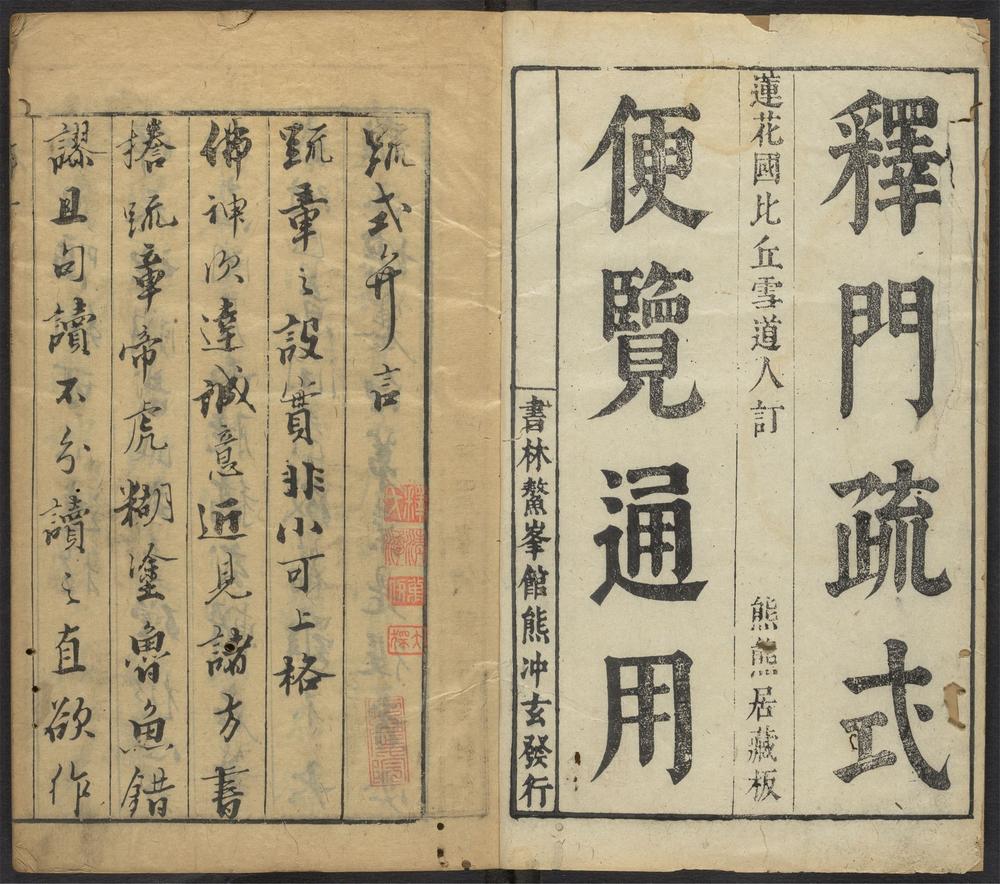 釋門疏式
蓮花國比丘雪道人訂 熊熊居藏板
便覽通用
書林鰲峯館熊冲玄發行
疏式弁言
疏章之設實非小可上格
佛神次達誠意近見諸方書
搭疏章帝虎糊塗魯魚錯
謬且句讀不分讀之直欲作